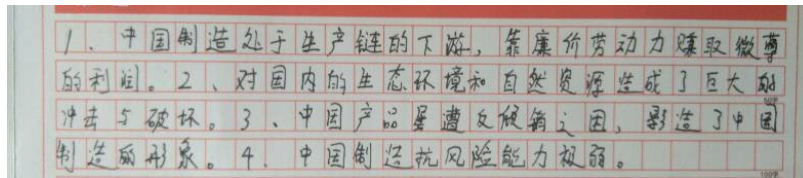 1、中国制造处于生产链的下游，靠廉价劳动力赚取微薄
的利润。2、对国内的生态环境和自然资源造成了巨大的
50字
冲击与破坏。3、中国产品屡遭反倾销之困，影造了中国
制造的形象。4.中国制造抗风险能力极弱。
100字